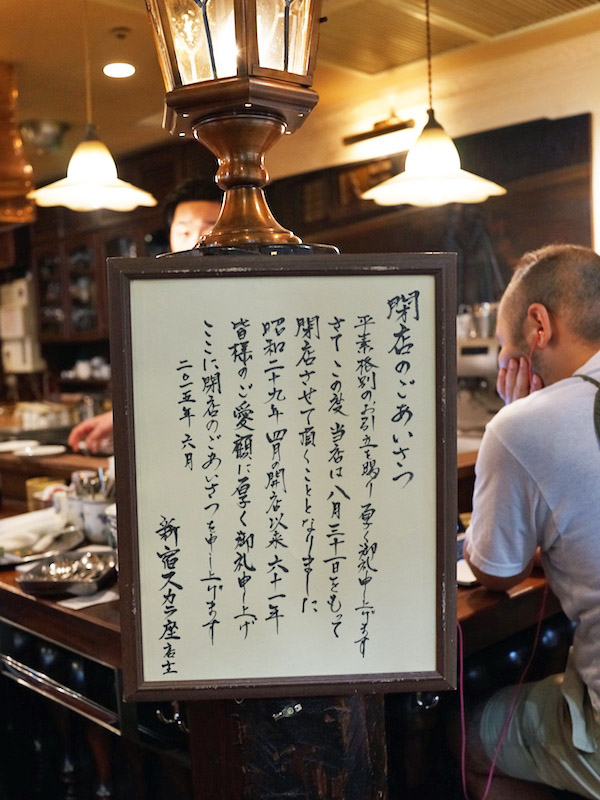 閉店のごあいさつ
平素格別のお引立を賜り厚く御礼申し上げます
さて この度 当店は 八月三十一日をもって
閉店させて頂くこととなりました
昭和二十九年 四月の開店以来 六十一年
皆様のご愛顧に厚く御礼申し上げ
ここに閉店のごあいさつを申し上げます
二〇一五年 六月
新宿スカラ座 店主